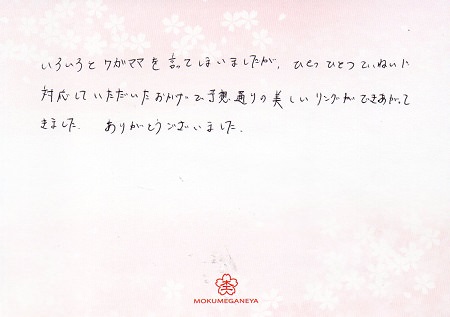 いろいろとワガママを言ってしまいましたが、ひとつひとつていねいに
対応していただいたおかげで予想通りの美しいリングができあがって
きました。ありがとうございました。
MOKUMEGANEYA